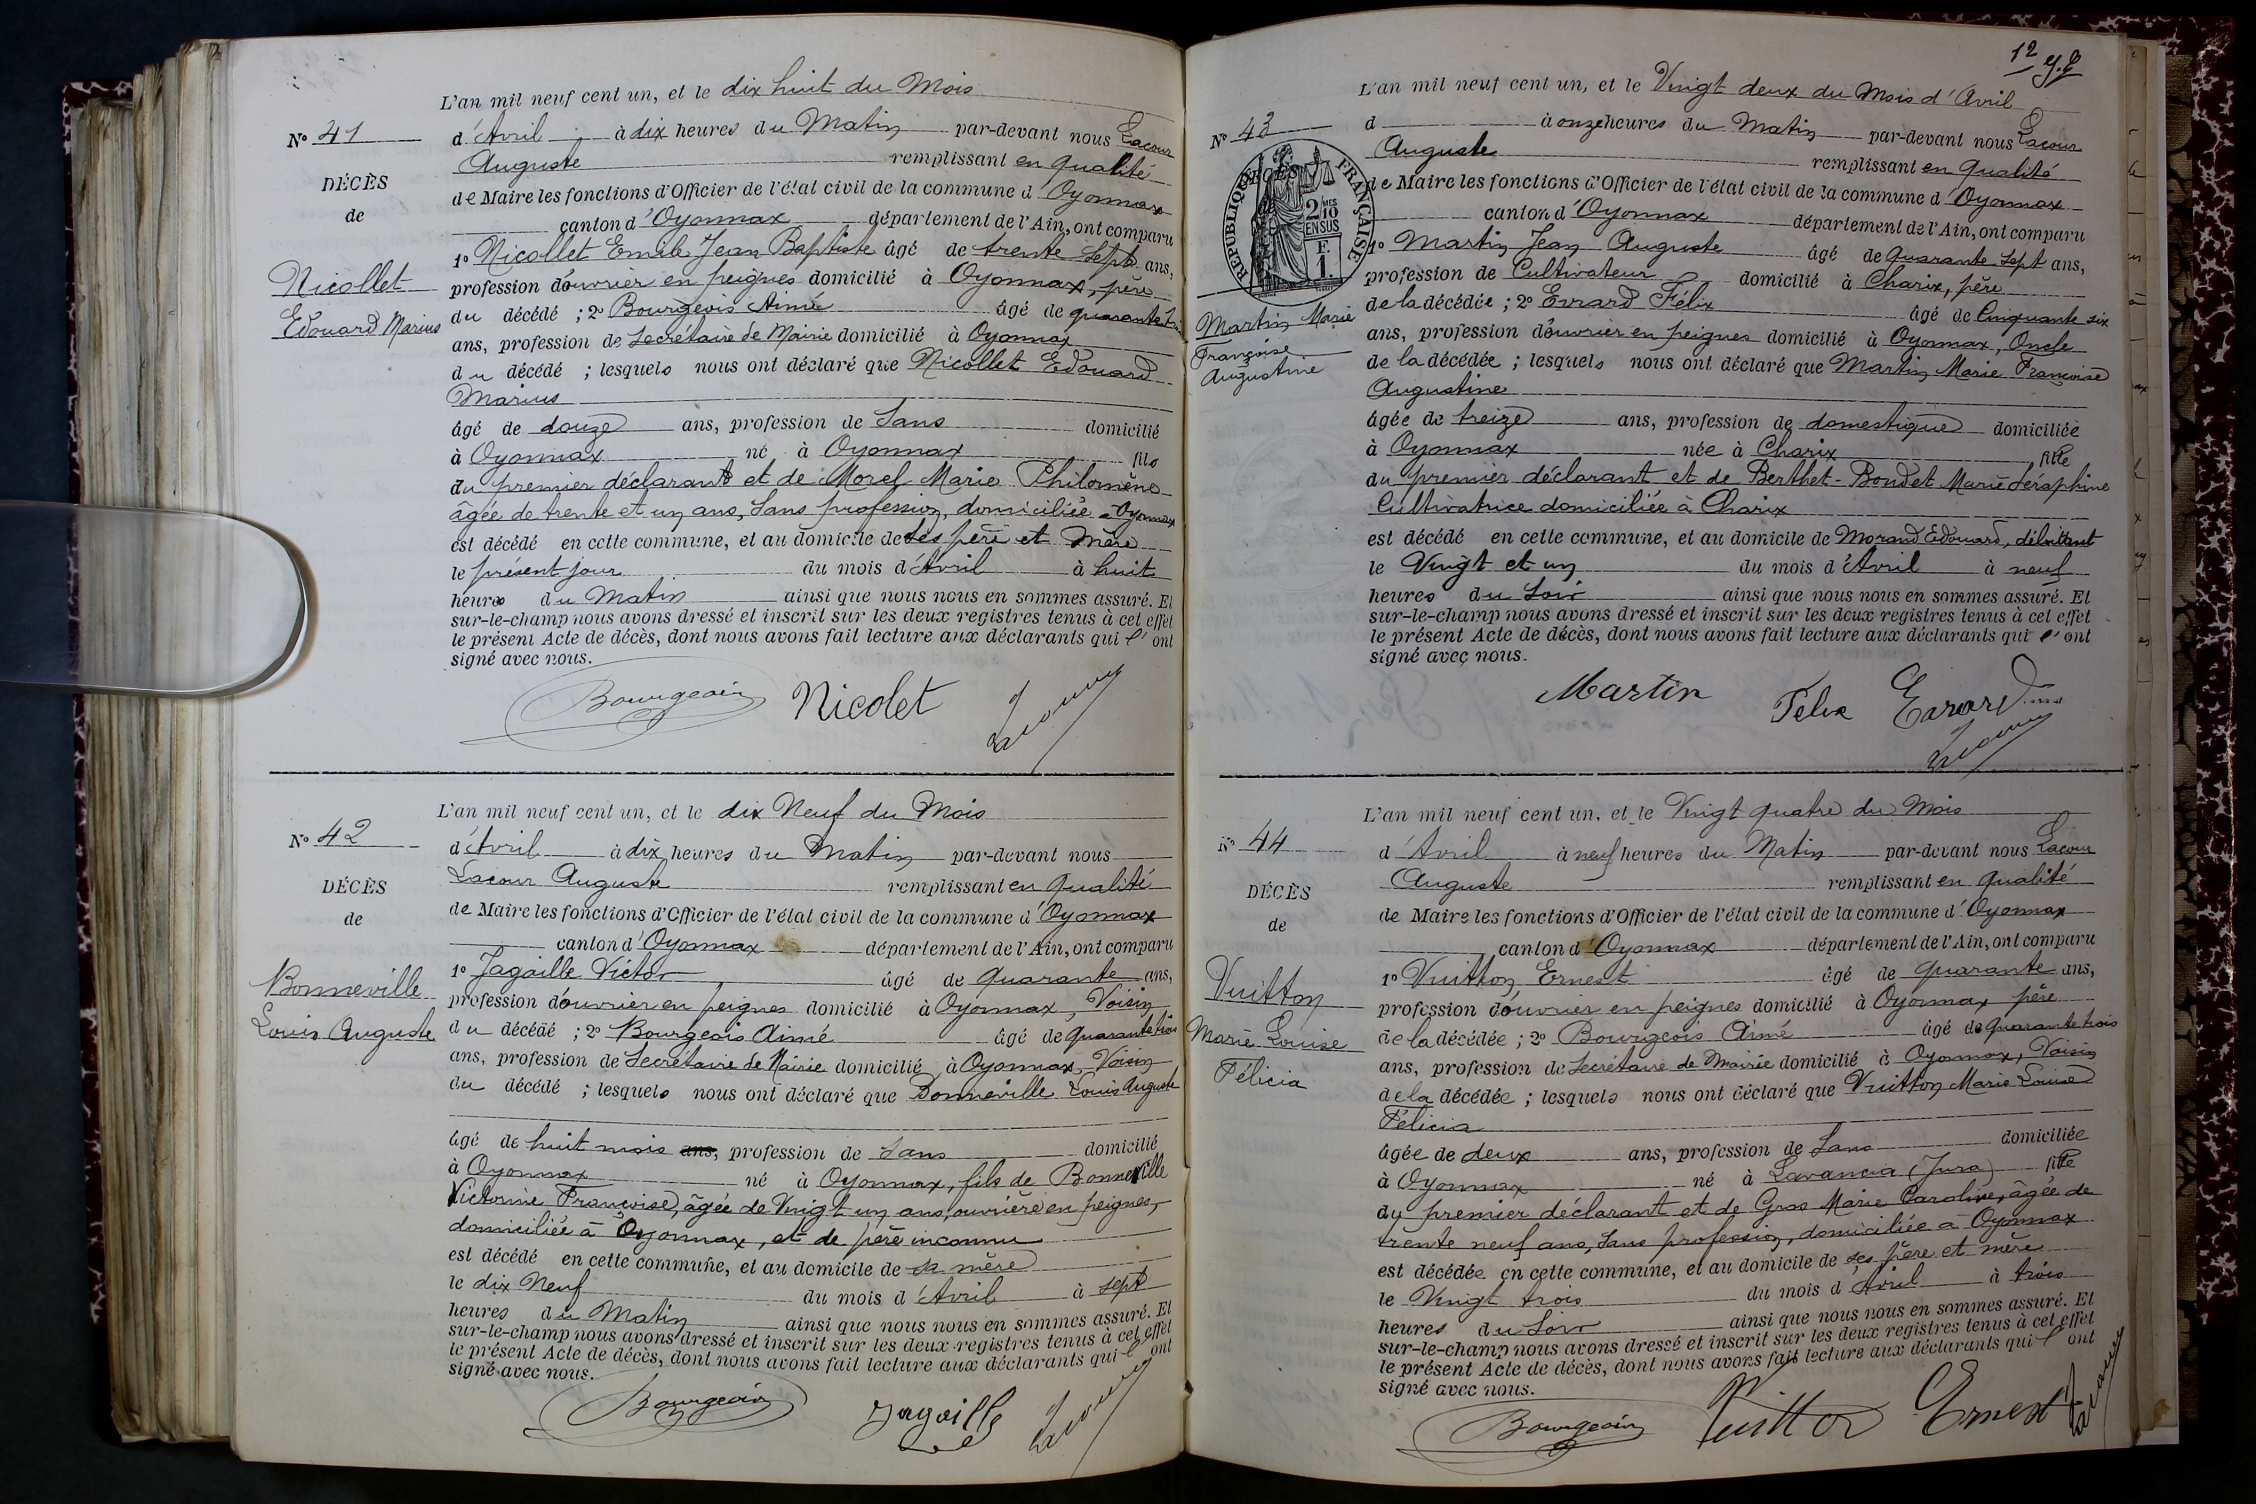 L'an mil neuf cent un, et le dix huit du Mois
N° 41
d'Avril à dix heures du Matin par-devant nous Lacour
Auguste remplissant en qualité
DÉCÈS
de Maire les fonctions d'Officier de l'état civil de la commune d'Oyonnax
de
canton d'Oyonnax département de l'Ain, ont comparu
1° Nicollet Emile Jean Baptiste âgé de trente sept ans,
Nicollet
profession d'ouvrier en peignes domicilié à Oyonnax, père
Edouard Marius
du décédé ; 2° Bourgeois Aimé âgé de quarante
ans, profession de Secrétaire de Mairie domicilié à Oyonnax
du décédé ; lesquels nous ont déclaré que Nicollet Edouard
Marius
âgé de douze ans, profession de Sans domicilié
à Oyonnax né à Oyonnax fils
du premier déclarant et de Morel Marie Philomène
âgée de trente et un ans, Sans profession, domiciliée à Oyonnax
est décédé en cette commune, et au domicile de ses père et mère
le présent jour du mois d'Avril à huit
heures du Matin ainsi que nous nous en sommes assuré. Et
sur-le-champ nous avons dressé et inscrit sur les deux registres tenus à cet effet
le présent Acte de décès, dont nous avons fait lecture aux déclarants qui l'ont
signé avec nous.
Bourgeois Nicolet Lacour
L'an mil neuf cent un, et le dix Neuf du Mois
N° 42
d'Avril à dix heures du Matin par-devant nous
Lacour Auguste remplissant en qualité
DÉCÈS
de Maire les fonctions d'Officier de l'état civil de la commune d'Oyonnax
de
canton d'Oyonnax département de l'Ain, ont comparu
1° Jagaille Victor âgé de quarante ans,
Bonneville
profession d'ouvrier en peignes domicilié à Oyonnax, Voisin
Louis Auguste
du décédé ; 2° Bourgeois Aimé âgé de quarante trois
ans, profession de Secrétaire de Mairie domicilié à Oyonnax, Voisin
du décédé ; lesquels nous ont déclaré que Bonneville Louis Auguste
âgé de huit mois ans, profession de Sans domicilié
à Oyonnax né à Oyonnax, fils de Bonneville
Victorine Françoise, âgée de Vingt un ans, ouvrière en peignes,
domiciliée à Oyonnax, et de père inconnu
est décédé en cette commune, et au domicile de sa mère
le dix Neuf du mois d'Avril à sept
heures du Matin ainsi que nous nous en sommes assuré. Et
sur-le-champ nous avons dressé et inscrit sur les deux registres tenus à cet effet
le présent Acte de décès, dont nous avons fait lecture aux déclarants qui l'ont
signé avec nous.
Bourgeois Jagaille Lacour
12
L'an mil neuf cent un, et le Vingt deux du Mois d'Avril
N° 43
d à onze heures du Matin par-devant nous Lacour
Auguste remplissant en qualité
DÉCÈS
RÉPUBLIQUE FRANÇAISE
2/10 MES EN SUS
1 F.
de Maire les fonctions d'Officier de l'état civil de la commune d'Oyonnax
canton d'Oyonnax département de l'Ain, ont comparu
1° Martin Jean Auguste âgé de quarante sept ans,
profession de Cultivateur domicilié à Charix, père
Martin Marie
Françoise
Augustine
de la décédée ; 2° Evrard Félix âgé de Cinquante six
ans, profession d'ouvrier en peignes domicilié à Oyonnax, Oncle
de la décédée ; lesquels nous ont déclaré que Martin Marie Françoise
Augustine
âgée de treize ans, profession de domestique domiciliée
à Oyonnax née à Charix fille
du premier déclarant et de Berthet-Bondet Marie Séraphine
Cultivatrice domiciliée à Charix
est décédé en cette commune, et au domicile de Morand Edouard, débitant
le Vingt et un du mois d'Avril à neuf
heures du Soir ainsi que nous nous en sommes assuré. Et
sur-le-champ nous avons dressé et inscrit sur les deux registres tenus à cet effet
le présent Acte de décès, dont nous avons fait lecture aux déclarants qui l'ont
signé avec nous.
Martin Felix Evrard
Lacour
L'an mil neuf cent un, et le Vingt quatre du Mois
N° 44
d'Avril à neuf heures du Matin par-devant nous Lacour
Auguste remplissant en qualité
DÉCÈS
de Maire les fonctions d'Officier de l'état civil de la commune d'Oyonnax
de
canton d'Oyonnax département de l'Ain, ont comparu
1° Vuitton Ernest âgé de quarante ans,
Vuitton
profession d'ouvrier en peignes domicilié à Oyonnax père
Marie Louise
de la décédée ; 2° Bourgeois Aimé âgé de quarante trois
Félicia
ans, profession de Secrétaire de Mairie domicilié à Oyonnax, Voisin
de la décédée ; lesquels nous ont déclaré que Vuitton Marie Louise
Félicia
âgée de deux ans, profession de Sans domiciliée
à Oyonnax né à Lavancia (Jura) fille
du premier déclarant et de Gros Marie Caroline, âgée de
trente neuf ans, Sans profession, domiciliée à Oyonnax
est décédée en cette commune, et au domicile de ses père et mère
le Vingt trois du mois d'Avril à trois
heures du Soir ainsi que nous nous en sommes assuré. Et
sur-le-champ nous avons dressé et inscrit sur les deux registres tenus à cet effet
le présent Acte de décès, dont nous avons fait lecture aux déclarants qui l'ont
signé avec nous.
Bourgeois Vuitton Ernest Lacour